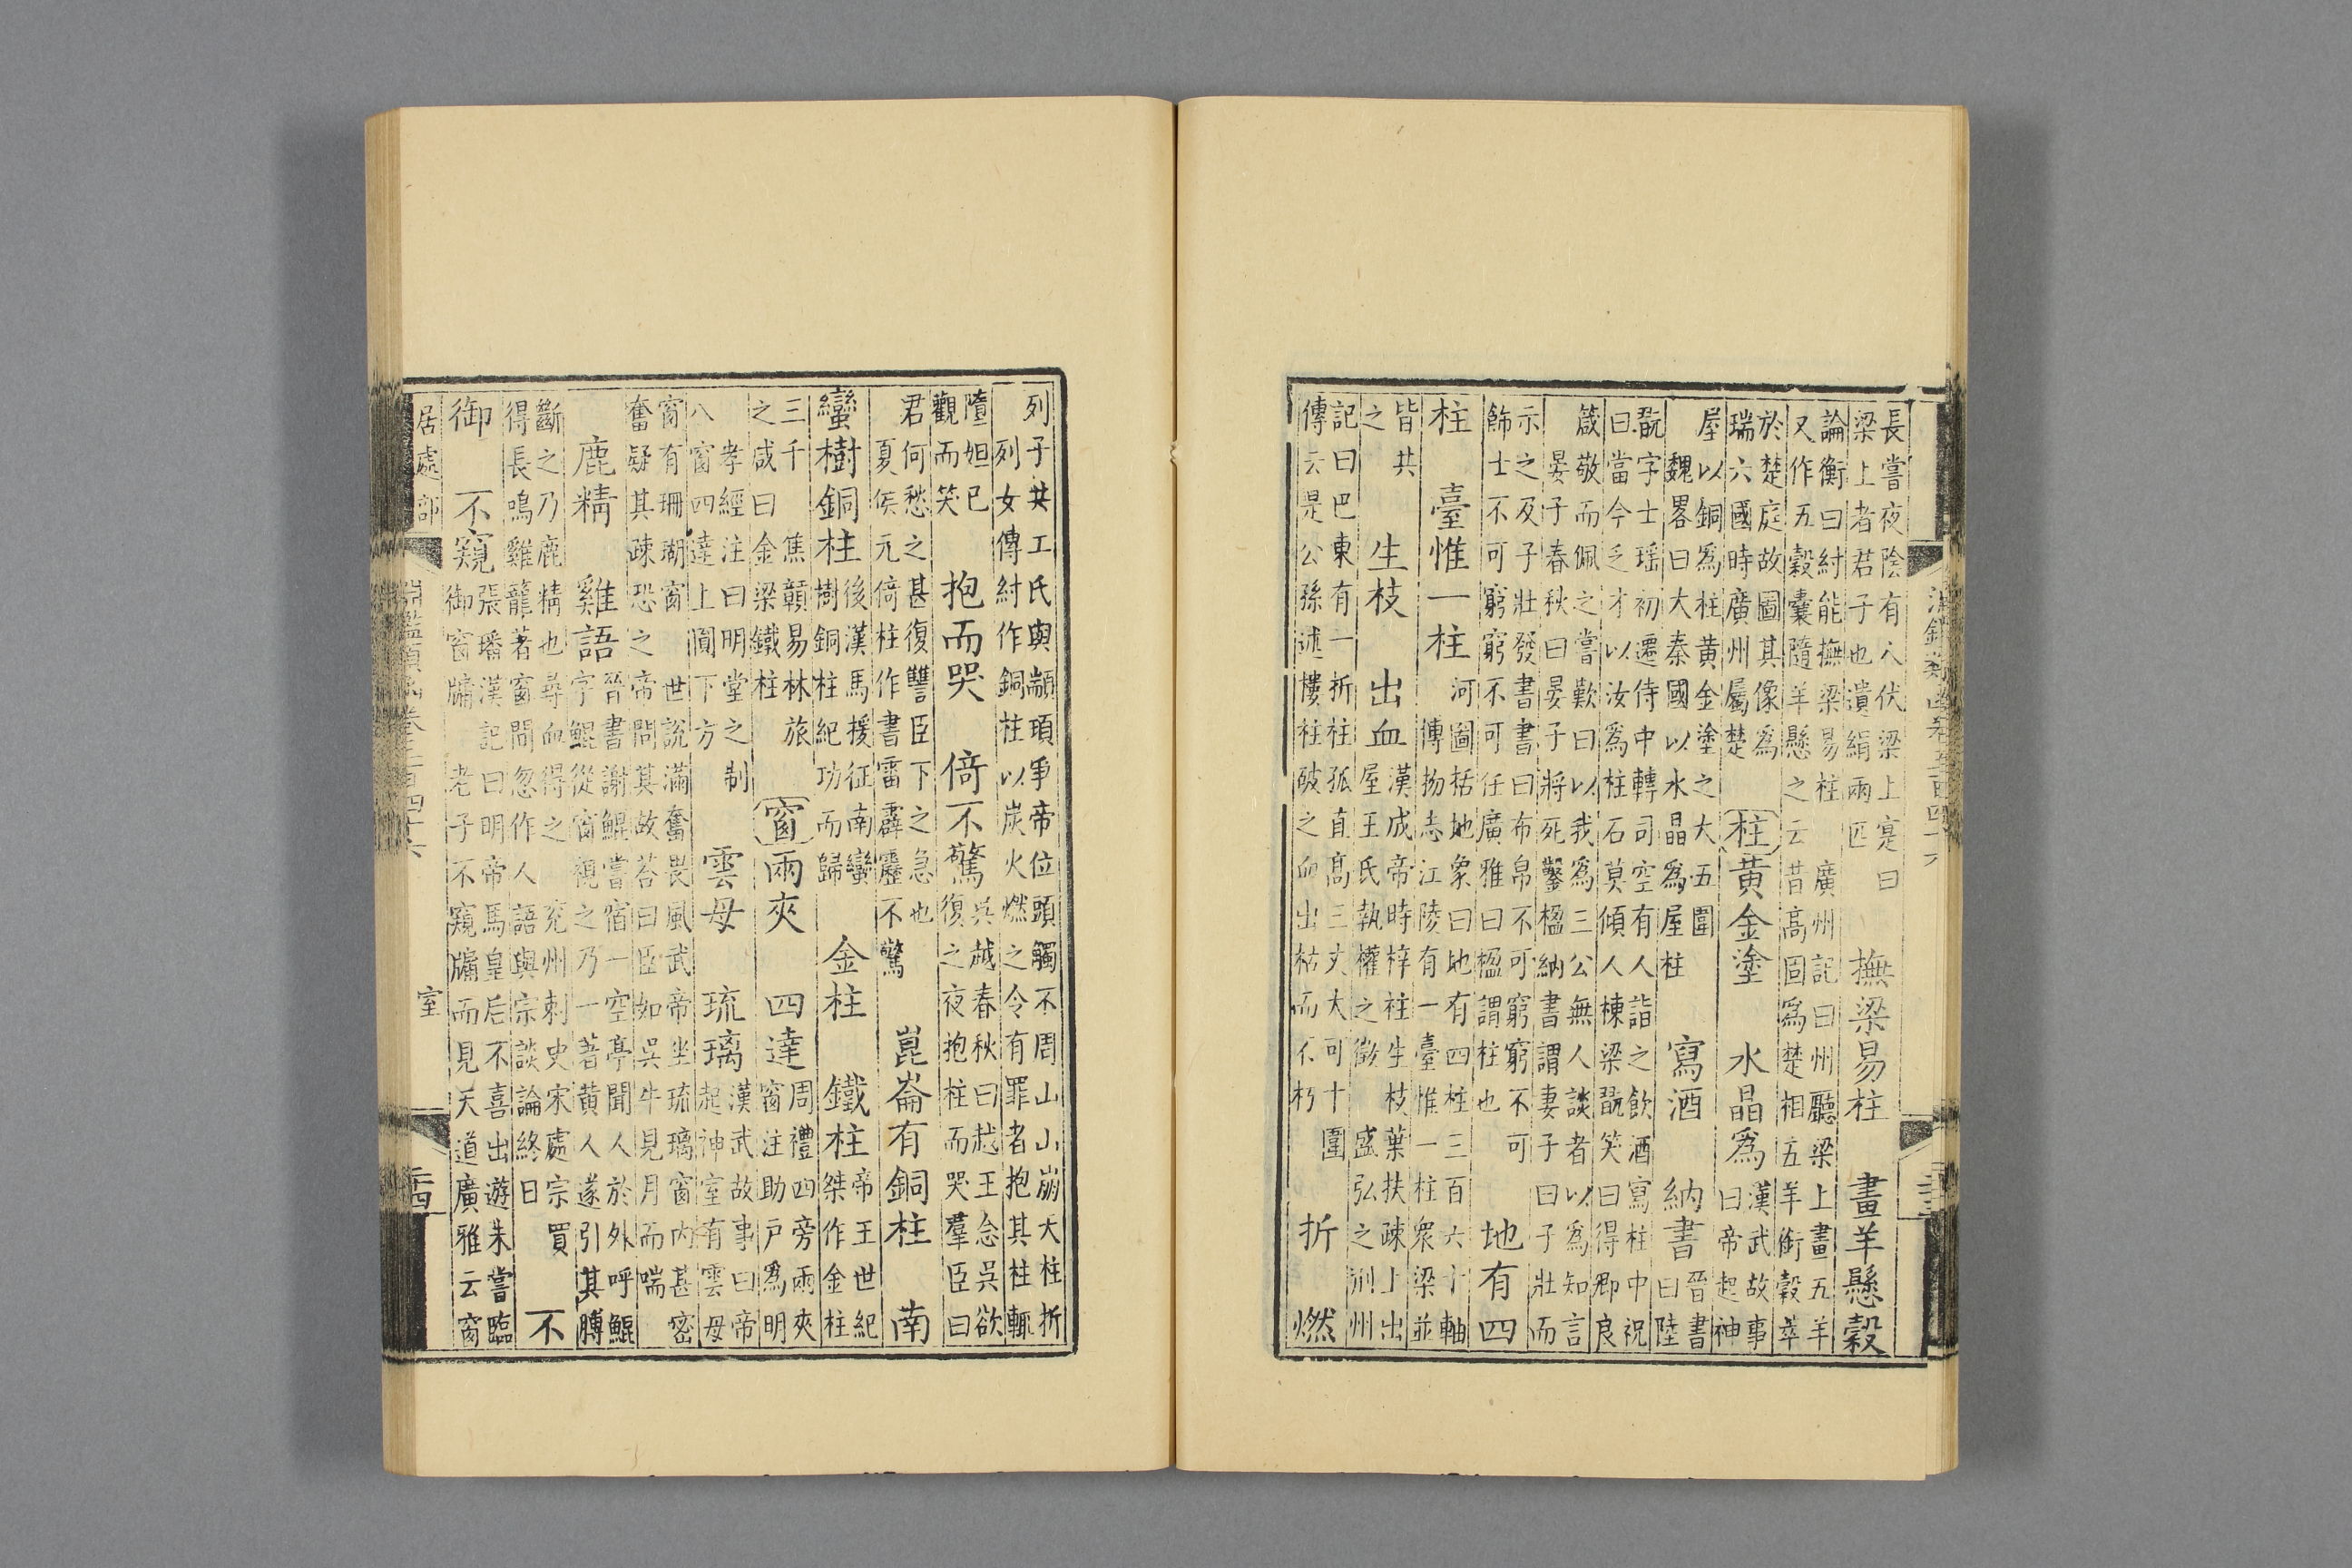 長嘗夜陰有人伏梁上寔曰
梁上者君子也遺絹兩匹
撫梁易柱
論衡曰紂能撫梁易柱
畫羊懸穀
廣州記曰州廳梁上畫五羊
又作五穀囊隨羊懸之云昔高固爲楚相五羊銜穀萃
於楚庭故圖其像爲
瑞六國時廣州屬楚
柱
黄金塗
漢武故事
曰帝起神
屋以銅爲柱黄金塗之大五圍
水晶爲
魏畧曰大秦國以水晶爲屋柱
寫酒
晉書
曰陸
翫字士瑶初遷侍中轉司空有人詣之飲酒寫柱中祝
曰當今乏才以汝爲柱石莫傾人棟梁翫笑曰得卿良
箴敬而佩之嘗歎曰以我爲三公無人談者以爲知言
納書
晏子春秋曰晏子將死鑿楹納書謂妻子曰子壯而
示之及子壯發書書曰布帛不可窮窮不可
飾士不可窮窮不可任廣雅曰楹謂柱也
地有四
柱
河圖括地象曰地有四柱三百六十軸
臺惟一柱
傳揚志江陵有一臺惟一柱衆梁並
皆共
之
生枝
出血
漢成帝時梓柱生枝葉扶疎上出
屋王氏執權之徵盛弘之荆州
記曰巴東有一折柱孤直高三丈大可十圍
傳云是公孫述樓柱破之血出枯而不朽
折
燃
列子共工氏與顓頊爭帝位頭觸不周山山崩天柱折
列女傳紂作銅柱以炭火燃之令有罪者抱其柱輒
墮妲已
觀而笑
抱而哭
倚不驚
吳越春秋曰越王念吳欲
復之夜抱柱而哭羣臣曰
君何愁之甚復讐臣下之急也
夏侯元倚柱作書雷霹靂不驚
崑崙有銅柱
南
蠻樹銅柱
後漢馬援征南蠻
樹銅柱紀功而歸
金柱
鐵柱
帝王世紀
桀作金柱
三千
之
焦贛易林旅
之咸曰金梁鐵柱
窗
兩夾
四達
周禮四旁兩夾
窗注助户爲明
孝經注曰明堂之制
八窗四達上圓下方
雲母
琉璃
漢武故事曰帝
起神室有雲母
窗有珊瑚窗
世說滿奮畏風武帝坐琉璃窗内甚密
奮疑其疎恐之帝問其故荅曰臣如吳牛見月而喘
鹿精
雞語
晉書謝鯤嘗宿一空亭聞人於外呼鯤
字鯤從窗視之乃一著黄人遂引其膊
斷之乃鹿精也尋血得之
兖州刺史宋處宗買
得長鳴雞籠著窗間忽作人語與宗談論終日
不
御
張璠漢記曰明帝馬皇后不喜出遊朱嘗臨
御窗牖
不窺
老子不窺牖而見天道廣雅云窗
居處部
室